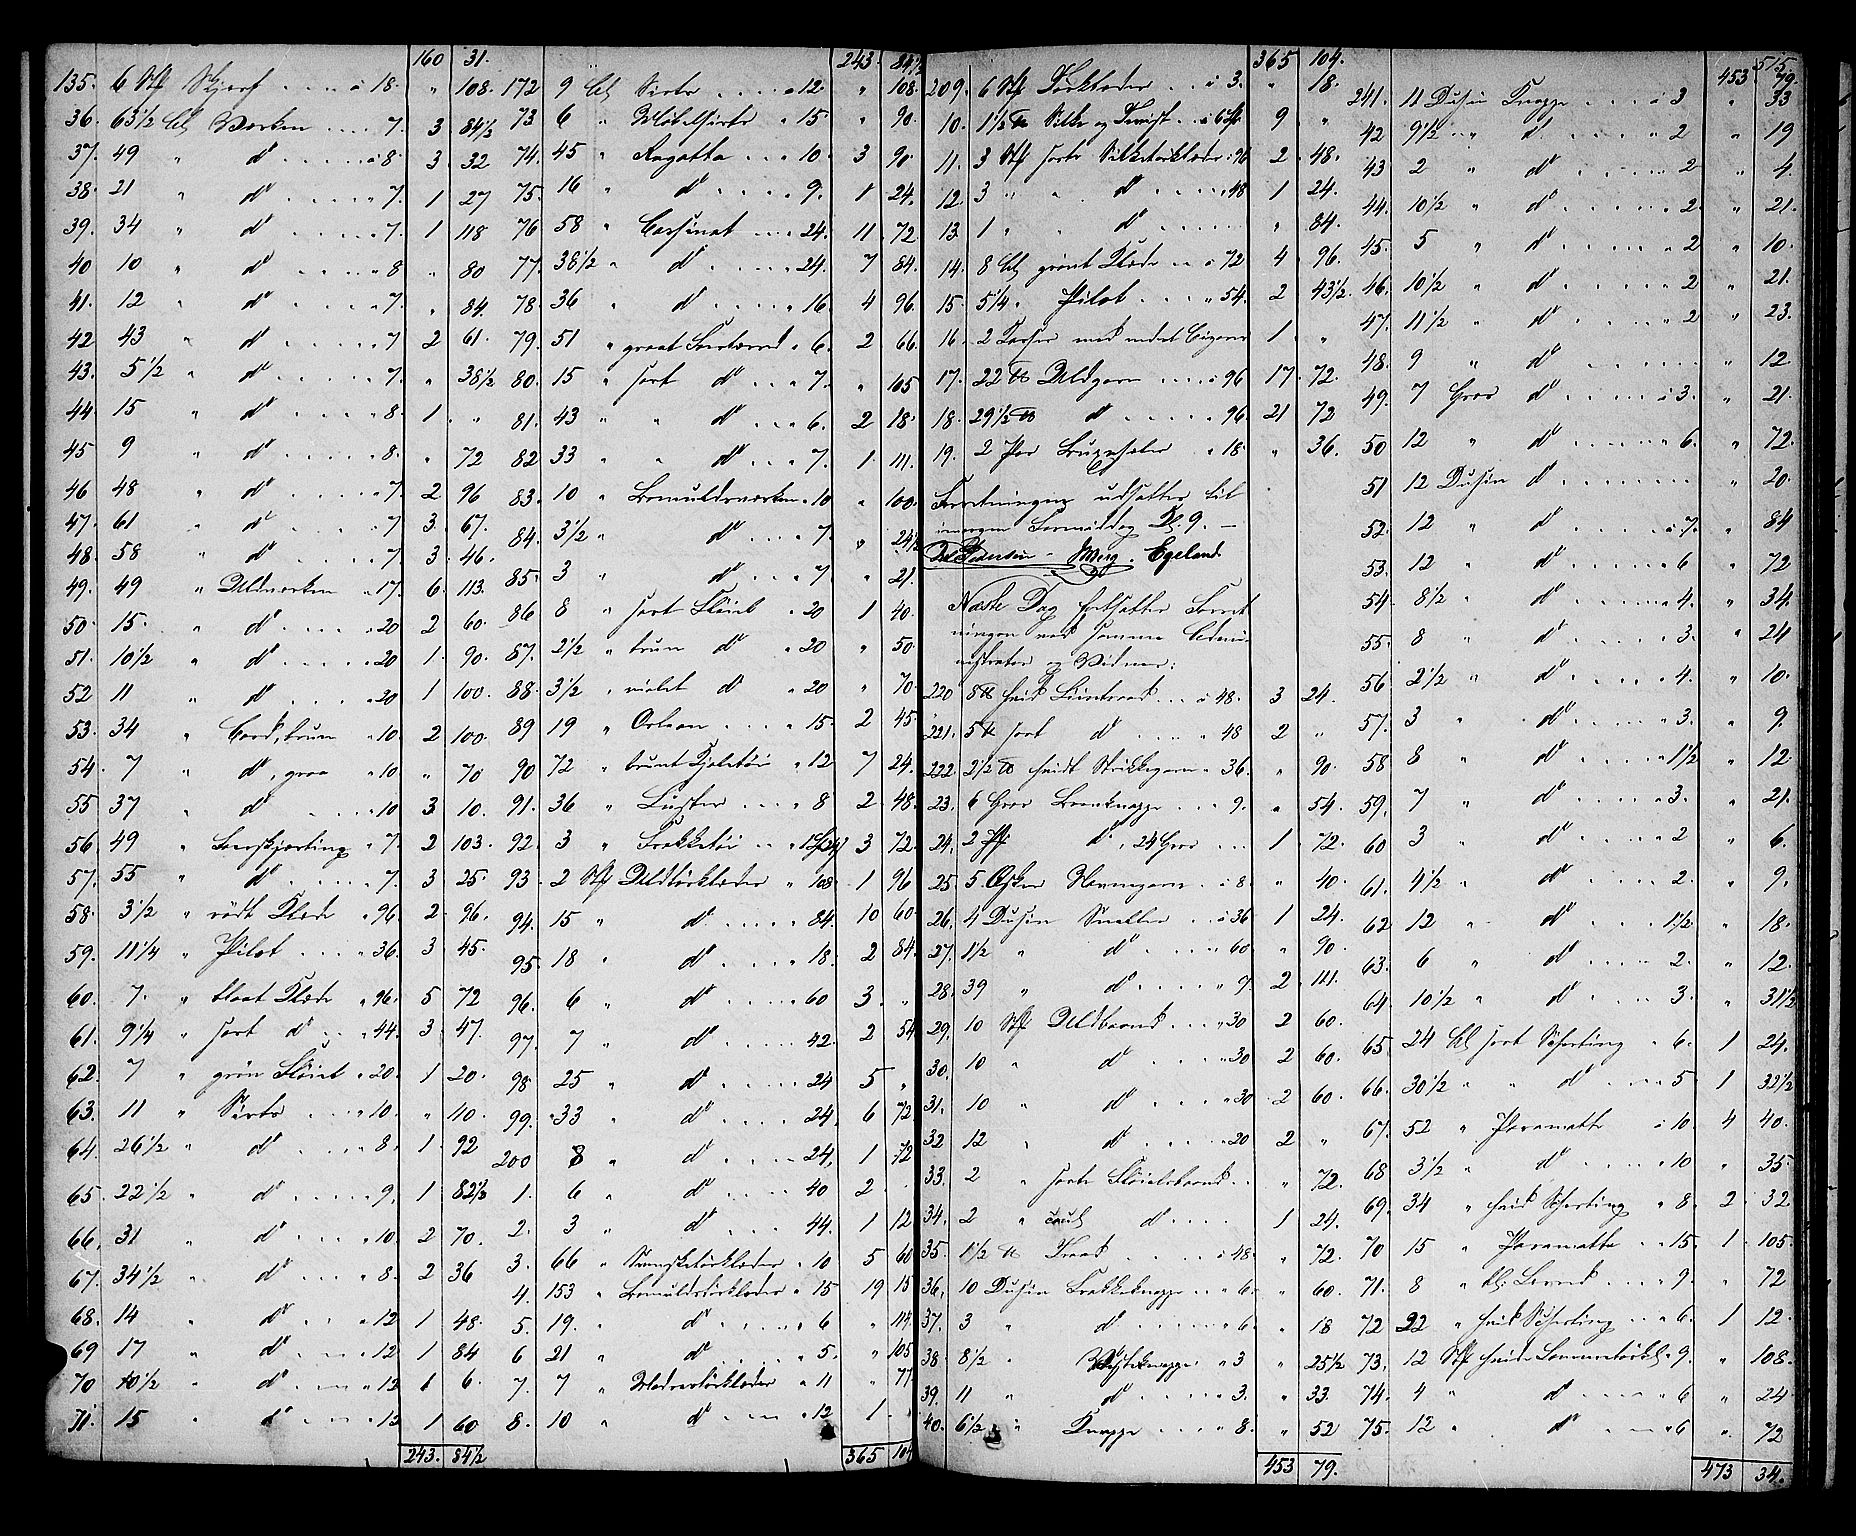 160 31.
135. 6 Stk Skjerf .... à 18. " 108.
36. 63 1/2 Al Værken .... 7. 3 84 1/2
37. 49 " do .... à 8. 3 32
38. 21 " do .... 7. 1 27
39. 34 " do .... 7. 1 118
40 10 " do .... 8 " 80
41. 12 " do .... 7. " 84.
42 43 " do .... 7 2 61.
43. 5 1/2 " do .... 7. " 38 1/2
44 15 " do .... 8. 1 "
45 9 " do .... 8. " 72
46 48 " do .... 7. 2 96
47. 61 " do .... 7 3. 67.
48. 58 " do .... 7. 3. 46.
49. 49 " Uldværken .. 17. 6. 113.
50. 15. " do .... 20 2 60.
51. 10 1/2 " do .... 20 1. 90.
52 11 " do .... 20 1 100.
53. 34 " Cord, brun .. 10. 2 100.
54. 7 " do, graa .. 10. " 70
55 37 " do .... 10 3 10.
56. 49 " Foerskjerting .. 7. 2 103.
57. 55 " do .... 7. 3 25.
58. 3 1/2 " rødt Klæde .. 96. 2. 96.
59. 11 1/4 " Pilot .... 36. 3 45.
60. 7. " blaat Klæde .. 96. 5 72
61. 9 1/4 " sort do .. 44. 3. 47.
62. 7 " grøn Fløiel .. 20. 1 20.
63. 11 " Sirts .... 10. " 110.
64. 26 1/2 " do .... 8. 1. 92
65. 22 1/2 " do .... 9. 1 82 1/2
66. 31 " do .... 10. 2 70.
67. 34 1/2 " do .... 8. 2 36
68. 14 " do .... 12 1 48.
69 17 " do .... 12 1 84
70 10 1/2 " do .... 12 1 6.
71. 15 " do .... 12 1 60
243. 84 1/2
243. 84 1/2
172 9 Al Sirts .... à 12. " 108.
73 6 " Møbelsirts .. 15. " 90.
74. 45 " Regatta .. 10. 3 90.
75. 16 " do .... 9. 1 24.
76 58 " Carsinat .. 24. 11 72
77. 38 1/2 " do .... 24. 7 84.
78. 36 " do .... 16 4 96.
79. 51 " graat Foerlærred .. 6. 2 66.
80. 15 " sort do .. 7. " 105
81. 43 " " do .. 6. 2 18.
82 33 " " do .. 7. 1. 111.
83. 10 " Bomuldsværken .. 10 " 100.
84. 3 1/2 " do .. 7. " 24 1/2
85. 3 " do .. 7 " 21.
86 8 " sort Fløiel .. 20 1 40.
87. 2 1/2 " brun do .. 20 " 50.
88. 3 1/2 " violet do .. 20 " 70.
89 19 " Orlean .... 15. 2 45.
90 72 " brunt Kjoletøi .. 12 7 24.
91. 36 " Lüster .... 8 2 48.
92. 3 " Frakketøi .. 3 72.
93. 2 Stk Uldtørklæder .. 108. 1 96
94. 15 " do .... 84. 10 60.
95. 18 " do .... 18. 2 84.
96. 6 " do .... 60 3. "
97. 7 " do .... 42. 2 54
98. 25 " do .... 24 5 "
99. 33 " do .... 24. 6 72
200 8 " do .... 24. 1 72
1. 6 " do .... 40 2
2. 3 " do .... 44. 1 12
3. 66 " .. 10 5 60
4. 153 " Bomuldstørklæder .. 15 19 15
5. 19. " do .... 6 " 114.
6 21 " do .... 5. " 105
7. 7 " .. 11 " 77.
8. 10 " do .... 12 1.
365 104
365 104.
209. 6 Stk Tørklæder .. à 3. " 18.
10. 1 1/2 ℔ Silke og .. 6 Sp 9 "
11. 3 Stk sorte Silketørklæder .. 96 2. 48.
12 3 " " do .... 48 1 24.
13. 1 " " do .... " 84.
14. 8 Al grønt Klæde .. à 72 4 96.
15. 5 1/4 " Pilot .... 54. 2 43 1/2.
16. 2 Kasser med .. 1 "
17. 22 ℔ Uldgarn .... à 96 17. 72.
18. 29 1/2 ℔ do .... 96. 21 72
19. 2 Par Buxeseler .. 18. " 36.
Forretningen udsattes til
imorgen Formiddag Kl. 9. —
Pedersen. Egeland.
Næste Dag fortsattes Forret
ningen med samme Admi-
nistrator og Vidner:
220 8 ℔ hvid Sintraad ... à 48. 3 24.
221. 5 ℔ sort do .... 48 2 "
222. 2 1/2 ℔ hvidt Strikkegarn .. 36. " 90.
23. 6 Gros Beenknappe ... 9. " 54.
24. 2 Pk do, 24 Gros ... 1 72.
25. 5 Æsker Navnegarn .. à 8. " 40.
26. 4 Dusin Sneller ... à 36 1 24.
27. 1 1/2 " do .... 60 " 90.
28. 39 " do .... 9. 2 111.
29. 10 Stk Uldbaand ... 30 2 60.
30. 10 " do .... 30 2 60.
31. 10 " do .... 30 2 60.
32 12 " do .... 20 2 "
33. 2 " sorte Fløielsbaand .. " 72.
34. 2 " do .... 1 24.
35. 1 1/2 ℔ Traad .... à 48. " 72.
36. 10 Dusin Frakkeknappe .. 6. " 60.
37. 3 " do .... 6. " 18
38. 8 1/2 " Vesteknappe .. 3 " 25 1/2
39. 11 " do .... 3. " 33.
40. 6 1/2 " Knappe .... 8. " 52
453 79.
453 79.
515
241. 11 Dusin Knappe .... à 3 " 33
42 9 1/2 " do .... 2 " 19
43 2 " do .... 2 " 4.
44. 10 1/2 " do .... 2. " 21.
45. 5 " do .... 2 " 10.
46. 10 1/2 " do .... 2 " 21.
47. 11 1/2 " do .... 2 " 23.
48. 9 " do .... " 12.
49. 7 Gros do .... à 3. " 21.
50 12 " do .... 6. " 72.
51 12 Dusin do .... " 20.
52. 12 " do .... à 7. " 84
53. 12 " do .... 6 " 72
54. 8 1/2 " do .... 4. " 34.
55. 8 " do .... 3. " 24
56 2 1/2 " do .... 4. " 10.
57. 3 " do .... 3. " 9.
58 8 " do .... 1 1/2 " 12.
59. 7 " do .... 3. " 21.
60 3 " do .... 2 " 6.
61. 4 1/2 " do .... 2. " 9.
62 12 " do .... 1 1/2. " 18.
63. 6 " do .... 2. " 12.
64. 10 1/2 " do .... 3. " 31 1/2
65. 24 Al sort Schirting .. 6. 1 24.
66. 30 1/2 " " do .... 5 1 32 1/2
67. 52 " Paramatta .. à 10. 4 40.
68 3 1/2 " do .... 10 " 35.
69. 34 " hvid Schirting .. 8. 2 32
70 15 " Paramatta .. 15. 1. 105.
71. 8 " .. 9. " 72
72 22 " hvid Schirting .. 6. 1 12.
73. 12 Stk hvide Lommetørkl. 9. " 108.
74. 4 " do .... 6 " 24
75. 12 " do .... 6 " 72
473 34.